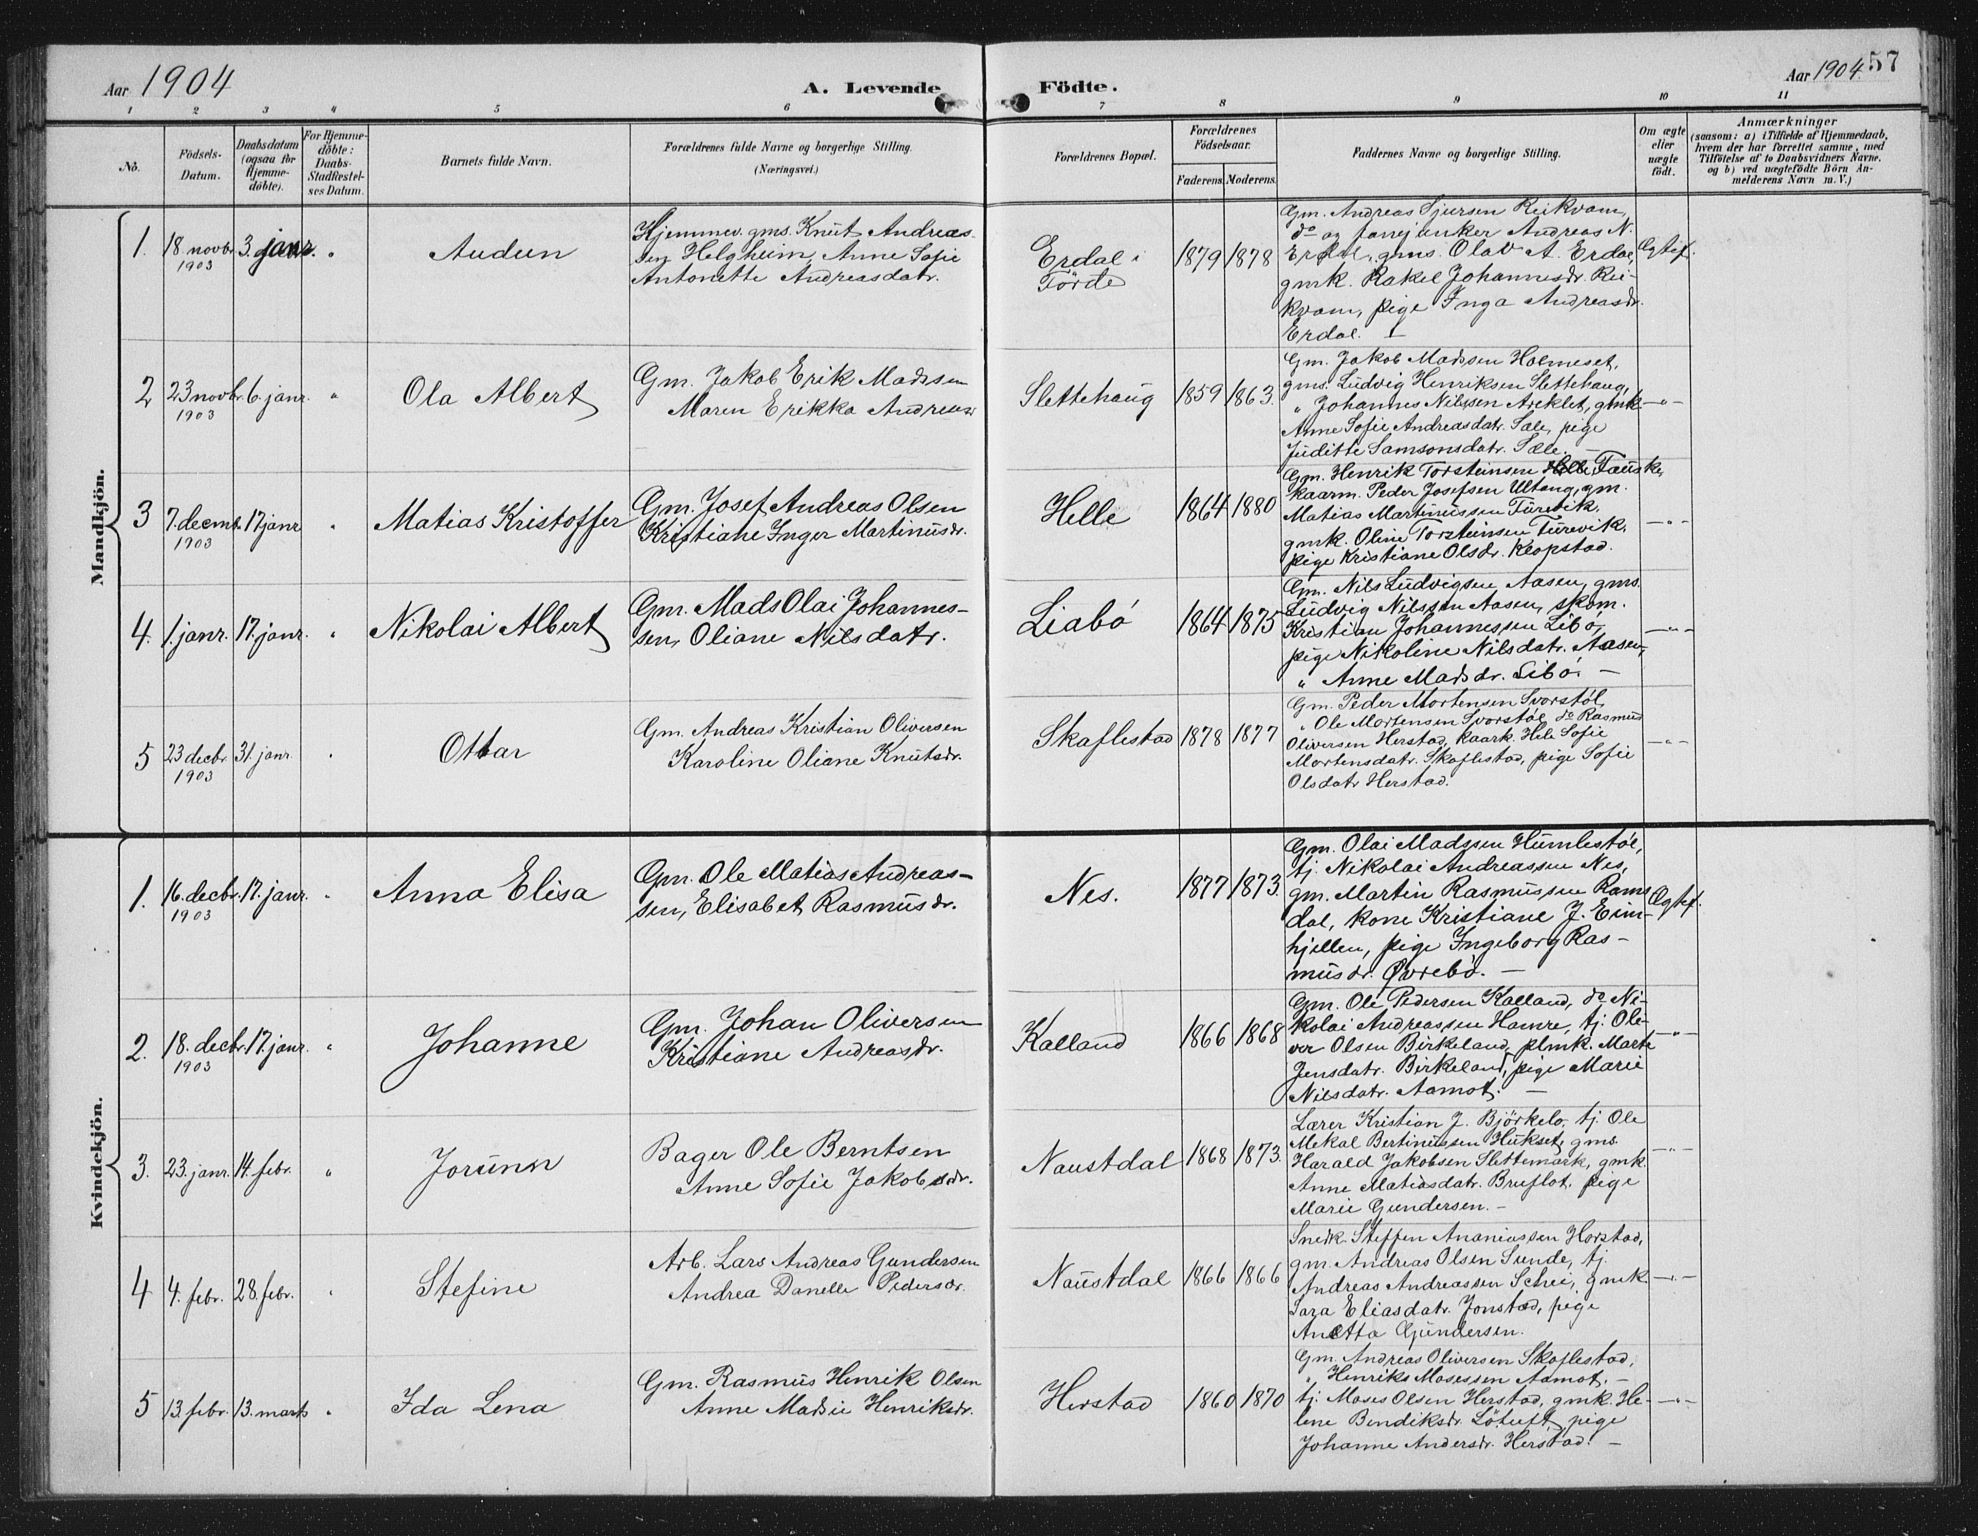 Aar 1904
A. Levende
Födte.
Aar 1904.
57
1 2 3 4 5 6 7 8 9 10 11
No.
Födsels-
Datum.
Daabsdatum
(ogsaa for
Hjemme-
döbte).
For Hjemme-
døbte:
Daabs-
Stadfæstel-
ses Datum.
Barnets fulde Navn.
Forældrenes fulde Navne og borgerlige Stilling.
(Næringsvei.)
Forældrenes Bopæl.
Forældrenes
Födselsaar.
Faderens.
Moderens.
Faddernes Navne og borgerlige Stilling.
Om ægte
eller
uægte
födt.
Anmærkninger
(saasom: a) i Tilfælde af Hjemmedaab,
hvem der har forrettet samme, med
Tilföielse af to Daabsvidners Navne.
og b) ved uægtefödte Börn An-
melderens Navn m. V.)
Mandkjön.
1. 18 novbr. 1903 3. janr. " Audun
Hjemmev. gms. Knut Andreas-
sen Helgheim, Anne Sofie
Antonette Andreasdatr.
Erdal i
Förde
1879 1878
Gm. Andreas Sjursen Reikvam,
do og fanejunker Andreas N.
Erdal, gms. Olav A. Erdal,
gmk. Rakel Johannesdr. Rei-
kvam, pige Inga Andreasdr.
Erdal. –
Ægtef.
2 23 novbr. 1903 6. janr. " Ola Albert
Gm. Jakob Erik Madssen
Maren Erikka Andreasdr
Slettehaug
1859 1863.
Gm. Jakob Madssen Holmeset,
gms. Ludvig Henriksen Slettehaug,
" Johannes Nilssen Areklet, gmk
Anne Sofie Andreasdatr. Sæle, pige
Juditte Samsonsdatr. Sæle. –
–"–
3 7. decmb. 1903 17 janr " Matias Kristoffer
Gm. Josef Andreas Olsen
Kristiane Inger Martinusdr.
Helle
1864 1880
Gm. Henrik Torsteinsen Fauske,
kaarm. Peder Josefsen Ultang, gm.
Matias Martinussen Turevik,
gmk. Oline Torsteinsen Turevik,
pige Kristiane Olsdr. Klopstad.
–"–
4. 1. janr. 17. janr. " Nikolai Albert
Gm. Mads Olai Johannes-
sen, Oliane Nilsdatr.
Liabö
1864 1875
Gm. Nils Ludvigsen Aasen, gms.
Ludvig Nilssen Aasen, skom.
Kristian Johannessen Libö,
pige Nikoline Nilsdatr. Aasen,
" Anne Madsdr. Libö. –
–"–
5 23 decbr. 1903 31. janr. " Ottar
Gm. Andreas Kristian Oliversen
Karoline Oliane Knutsdr.
Skaflestad
1878 1877
Gm. Peder Mortensen Svorstöl,
" Ole Mortensen Svorstöl do Rasmus
Oliversen Herstad, kaark. Hele Sofie
Mortensdatr. Skaflestad, pige Sofie
Olsdatr Herstad.
–"–
Kvindekjön.
1. 16 decbr. 1903 17. janr. " Anna Elisa
Gm. Ole Matias Andreas-
sen, Elisabet Rasmusdr.
Nes.
1877 1873.
Gm. Olai Madssen Humlestöl,
tj. Nikolai Andreassen Nes,
gm. Martin Rasmussen Rams
dal, kone Kristiane J. Eim-
hjellen, pige Ingeborg Ras-
musdr. Øvrebö. –
Ægtef.
2. 18. decbr. 1903 17. janr. " Johanne
Gm. Johan Oliversen
Kristiane Andreasdr.
Kalland
1866 1868
Gm. Ole Pedersen Kalland, do Ni-
kolai Andreassen Hamre, tj. Oli-
ver Olsen Birkeland, plmk. Marte
Jensdatr. Birkeland, pige Marie
Nilsdatr. Aamot. –
–"–
3. 23. janr. 14. febr. " Jorunn
Bager Ole Berntsen
Anne Sofie Jakobsdr.
Naustdal
1868 1873.
Lærer Kristian J. Björkelo, tj. Ole
Mekal Bertinussen Hukset, gms.
Harald Jakobsen Slettemark, gmk.
Anne Matiasdatr. Bruflot, pige
Marie Gundersen. –
–"–
4 4. febr. 28. febr. " Stefine
Arb. Lars Andreas Gundersen
Andrea Danelle Pedersdr.
Naustdal
1866 1866
Snedk. Steffen Ananiassen Horstad,
gm. Andreas Olsen Sunde, tj.
Andreas Andreassen Schei, gmk.
Sara Eliasdatr. Jonstad, pige
Anetta Gundersen.
–"–
5 13. febr. 13. marts " Ida Lena
Gm. Rasmus Henrik Olsen
Anne Madsie Henriksdr.
Herstad
1860 1870
Gm. Andreas Oliversen Skaflestad,
" Henriks Mosessen Aamot. –
tj. Moses Olsen Herstad, gmk. He-
lene Bendiksdr. Lötuft, pige
Johanne Andersdr. Herstad. –
–"–